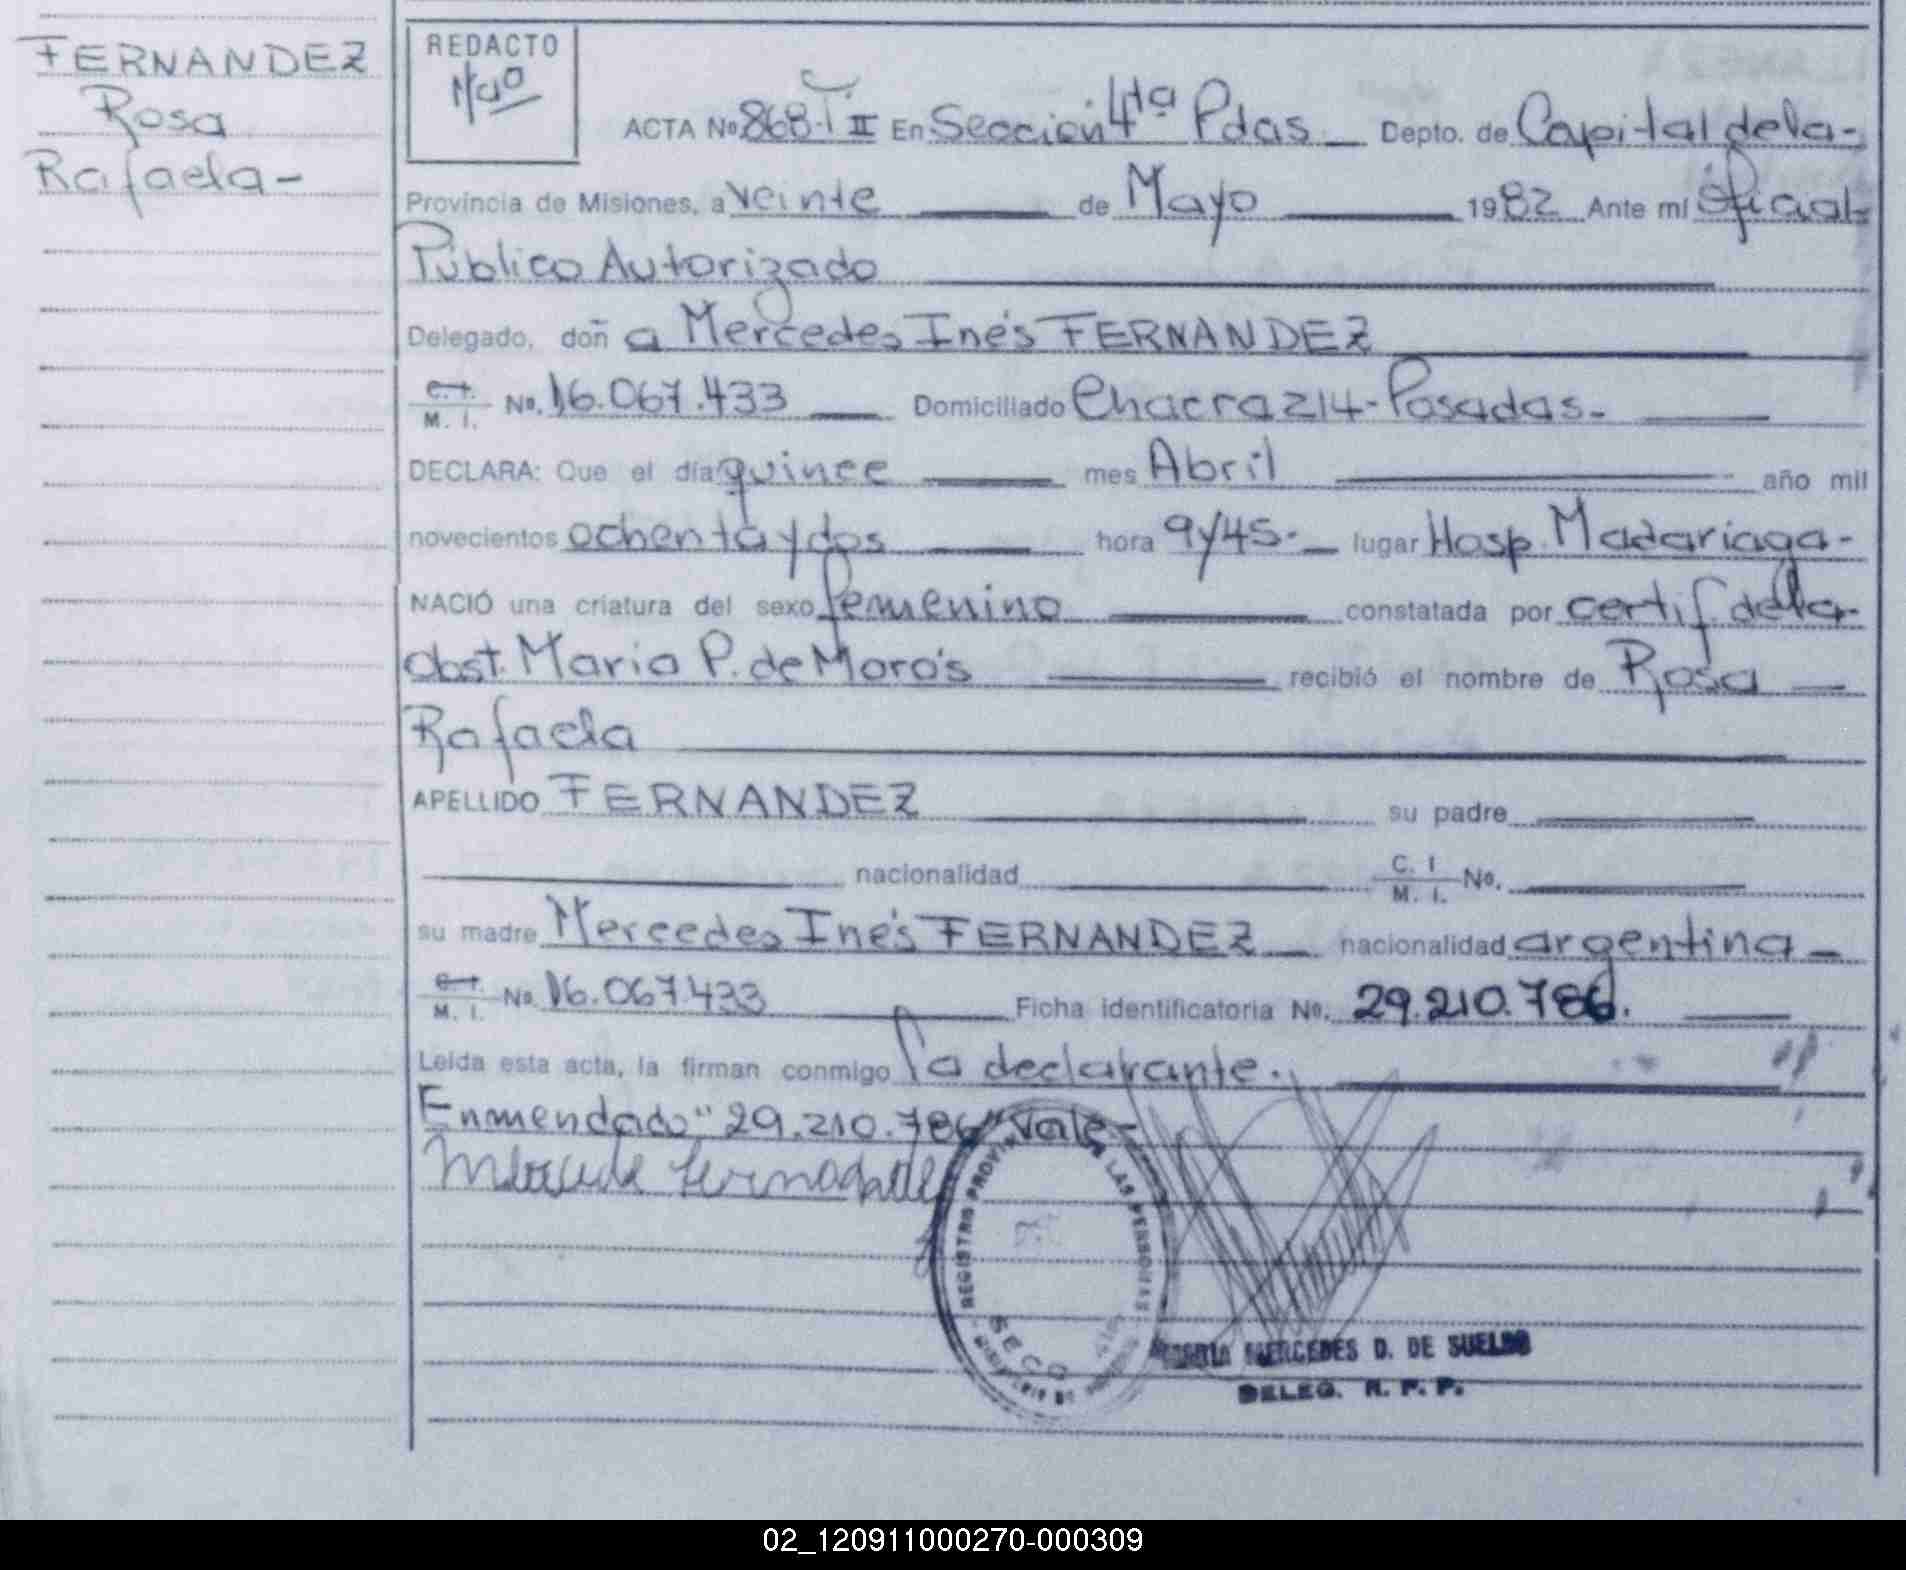 FERNANDEZ
Rosa
Rafaela-
REDACTO
ACTA No 868-T II En Sección 4ta Pdas. Depto. de Capital de la-
Provincia de Misiones, a veinte de Mayo 1982 Ante mi Oficial
Público Autorizado
Delegado, doñ a Mercedes Inés FERNANDEZ
C.I. M. I. No. 16.067.433 Domiciliado Chacra 214-Posadas-
DECLARA: Que el día quince mes Abril año mil
novecientos ochenta y dos hora 9y45- lugar Hosp. Madariaga-
NACIÓ una criatura del sexo femenino constatada por certif. de la
obst. Maria P. de Moro's recibió el nombre de Rosa
Rafaela
APELLIDO FERNANDEZ su padre
nacionalidad C. I M. I. No.
su madre Mercedes Inés FERNANDEZ nacionalidad argentina
C.I. M. I. No. 16.067.433 Ficha identificatoria No. 29.210.786.
Leída esta acta, la firman conmigo la declarante.
Enmendado "29.210.786" Vale-
REGISTRO PROVIN LAS PERSONAS
SECC
MARIA MERCEDES D. DE SUELDO
DELEG. R. P. P.
02_120911000270-000309